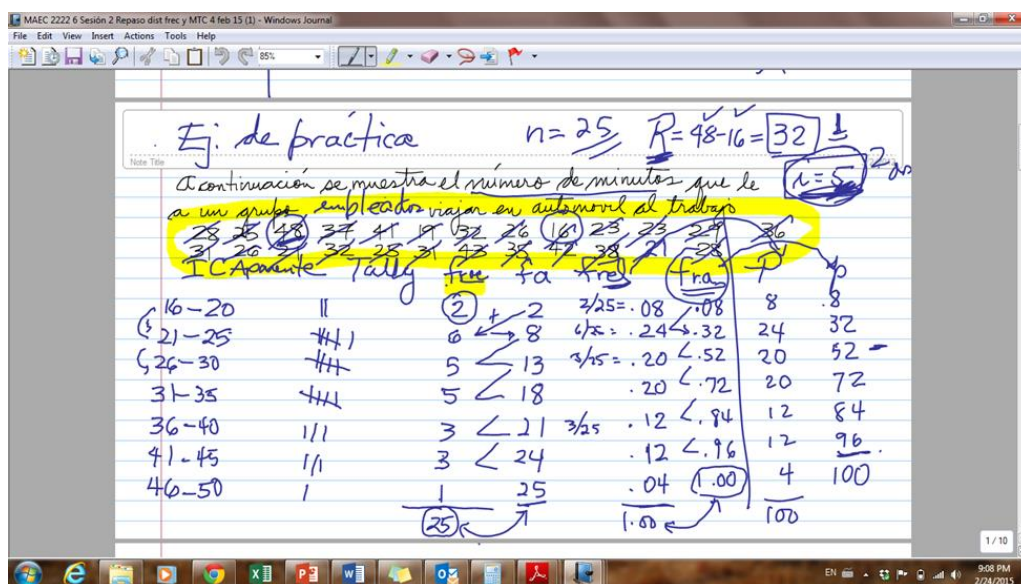 MAEC 2222 6 Sesión 2 Repaso dist frec y MTC 4 feb 15 (1) - Windows Journal
File Edit View Insert Actions Tools Help
85%
Ej. de práctica n = 25 R = 48-16 = 32 1
Note Title
i = 5 2
A continuación se muestra el número de minutos que le
a un grupo empleados viajar en automovil al trabajo
28 25 48 37 41 19 32 26 16 23 23 29 36
31 26 21 32 25 31 43 35 42 38 21 28
IC Aparente Tally fre fa frel fra P
16-20 || 2 + 2 2/25=.08 .08 8 .8
21-25 |||| | 6 8 6/25= .24 .32 24 32
26-30 |||| 5 13 3/25= .20 .52 20 52
31-35 |||| 5 18 .20 .72 20 72
36-40 ||| 3 21 3/25 .12 .84 12 84
41-45 ||| 3 24 .12 .96 12 96
46-50 | 1 25 .04 1.00 4 100
25 1.00 100
1 / 10
EN 9:08 PM
2/24/2015